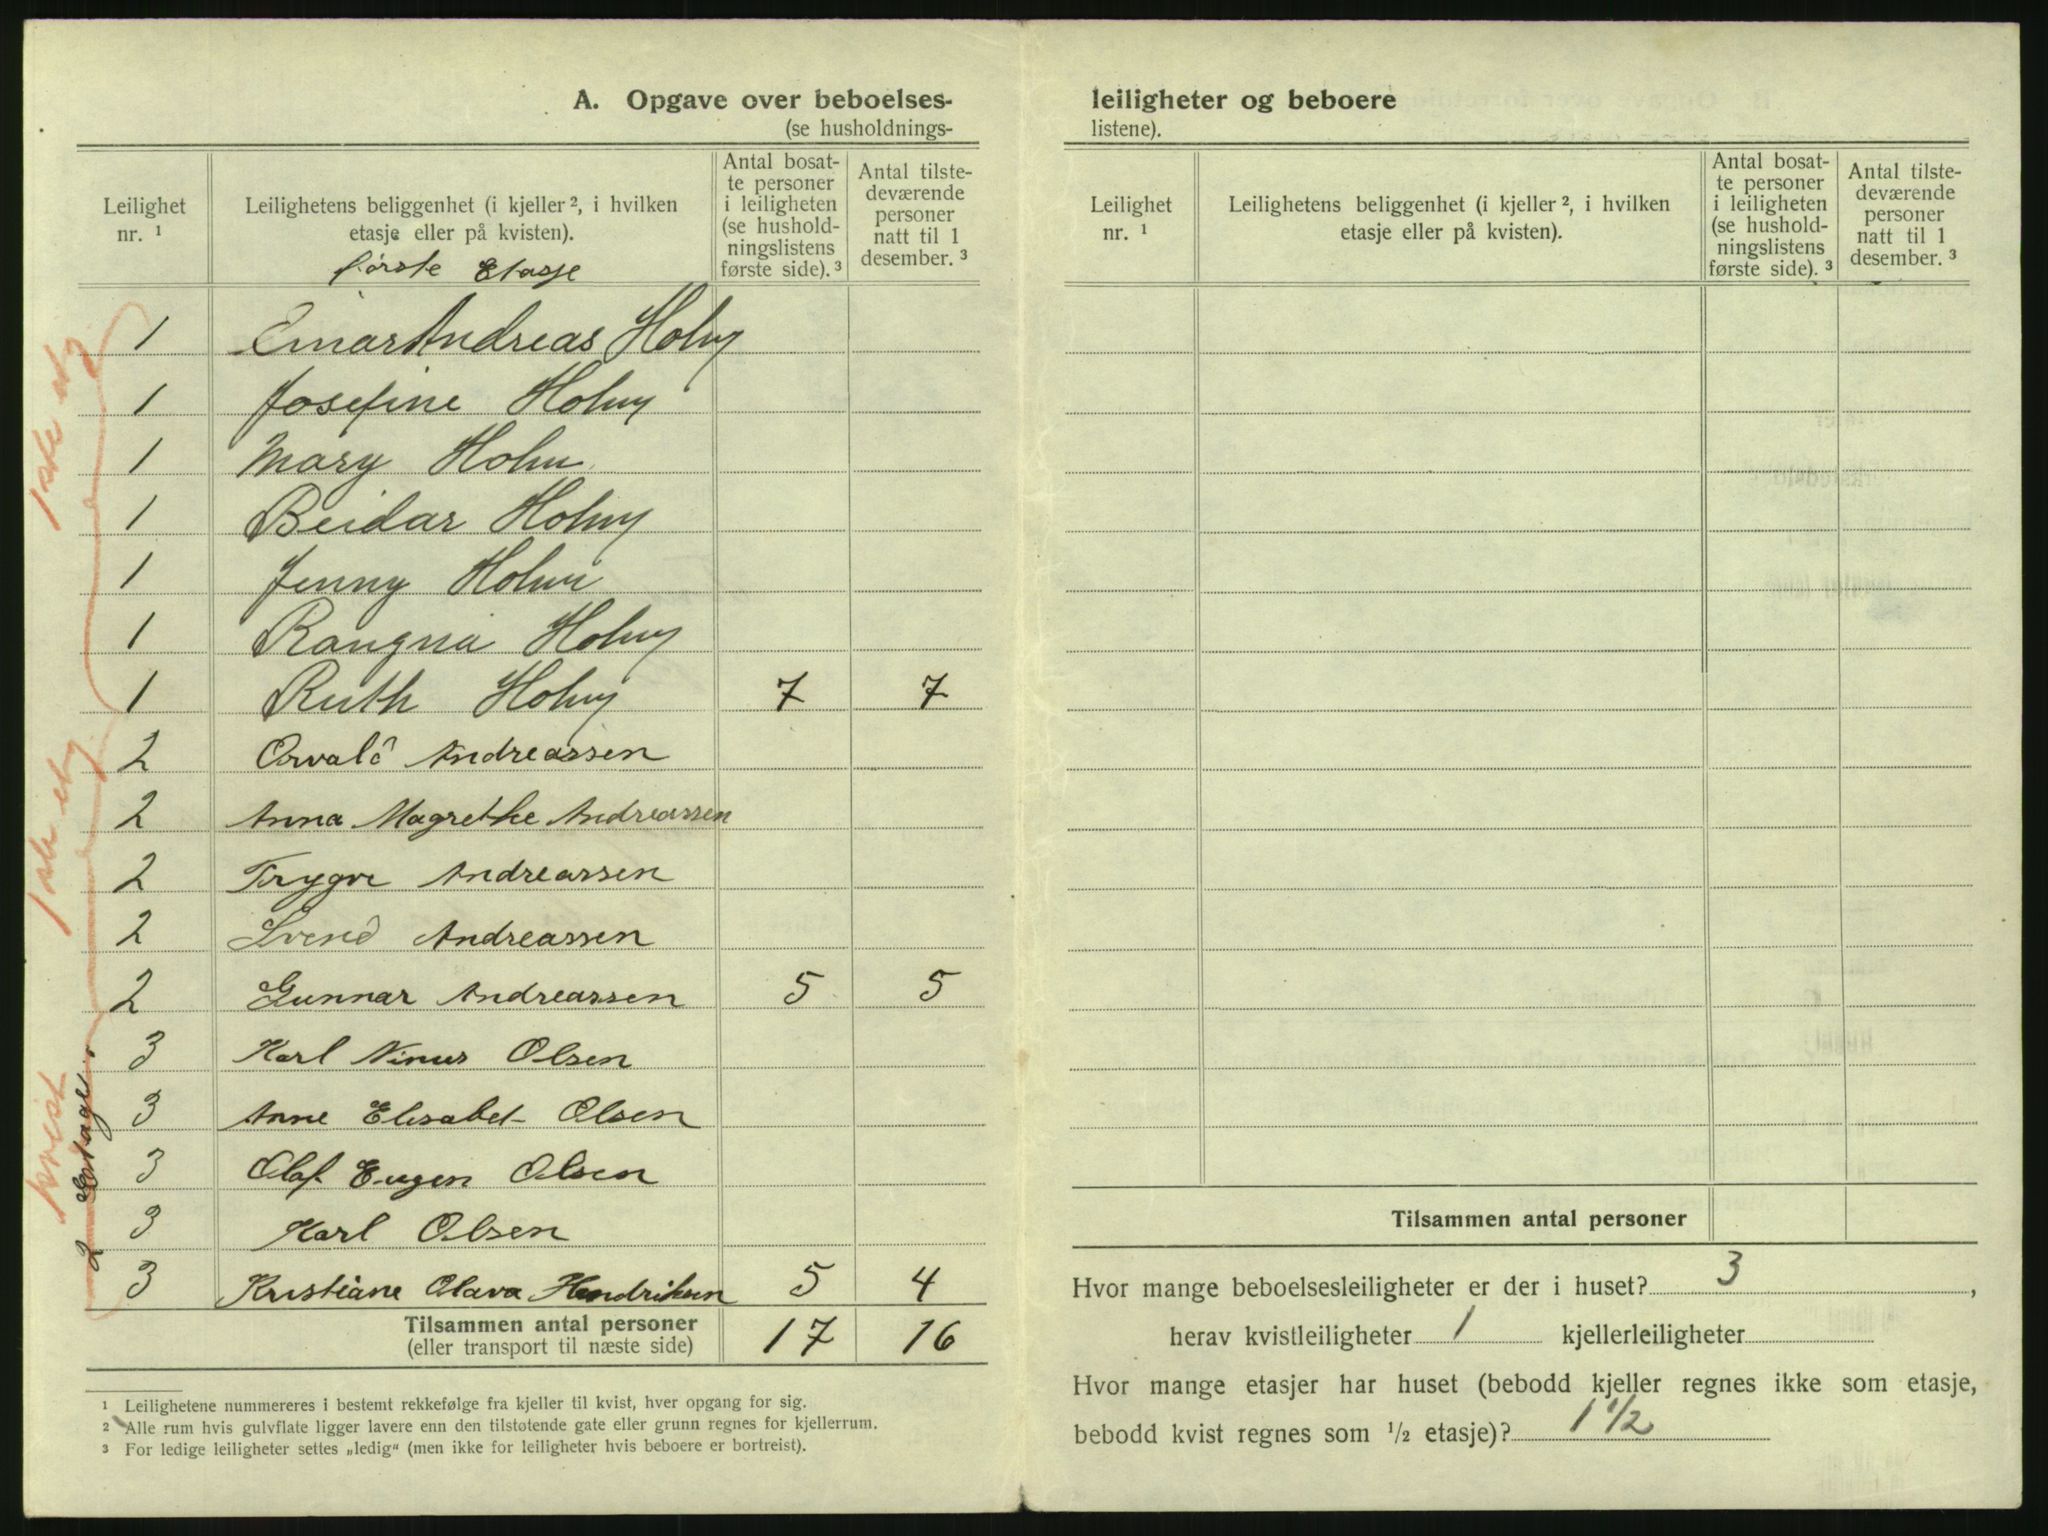 A. Opgave over beboelses-
(se husholdnings-
Leilighet nr. ¹
Leilighetens beliggenhet (i kjeller ², i hvilken etasje eller på kvisten).
første Etasje
Antal bosat-
te personer
i leiligheten
(se hushold-
ningslistens
første side). ³
Antal tilste-
deværende
personer
natt til 1
desember. ³
1 Einar Andreas Holm
1 Josefine Holm
1 Mary Holm
1 Reidar Holm
1 Jenny Holm
1 Rangna Holm
1 Ruth Holm 7 7
2 Osvald Andreassen
2 Anna Magrethe Andreassen
2 Trygve Andreassen
2 Svend Andreassen
2 Gunnar Andreassen 5 5
3 Karl Ninus Olsen
3 Anne Elisabet Olsen
3 Olaf Eugen Olsen
3 Karl Olsen
3 Kristiane Olava Hendriksen 5 4
Tilsammen antal personer 17 16
(eller transport til næste side)
1ste etg
1ste etg
kvist
2 Etage
¹ Leilighetene nummereres i bestemt rekkefølge fra kjeller til kvist, hver opgang for sig.
² Alle rum hvis gulvflate ligger lavere enn den tilstøtende gate eller grunn regnes for kjellerrum.
³ For ledige leiligheter settes „ledig“ (men ikke for leiligheter hvis beboere er bortreist).
leiligheter og beboere
listene).
Leilighet nr. ¹
Leilighetens beliggenhet (i kjeller ², i hvilken etasje eller på kvisten).
Antal bosat-
te personer
i leiligheten
(se hushold-
ningslistens
første side). ³
Antal tilste-
deværende
personer
natt til 1
desember. ³
Tilsammen antal personer
Hvor mange beboelsesleiligheter er der i huset? 3,
herav kvistleiligheter 1 kjellerleiligheter
Hvor mange etasjer har huset (bebodd kjeller regnes ikke som etasje,
bebodd kvist regnes som ½ etasje)? 1 1/2